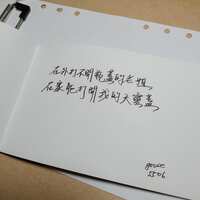 在外打不開瓶蓋的老姐
在家能打開我的天靈蓋